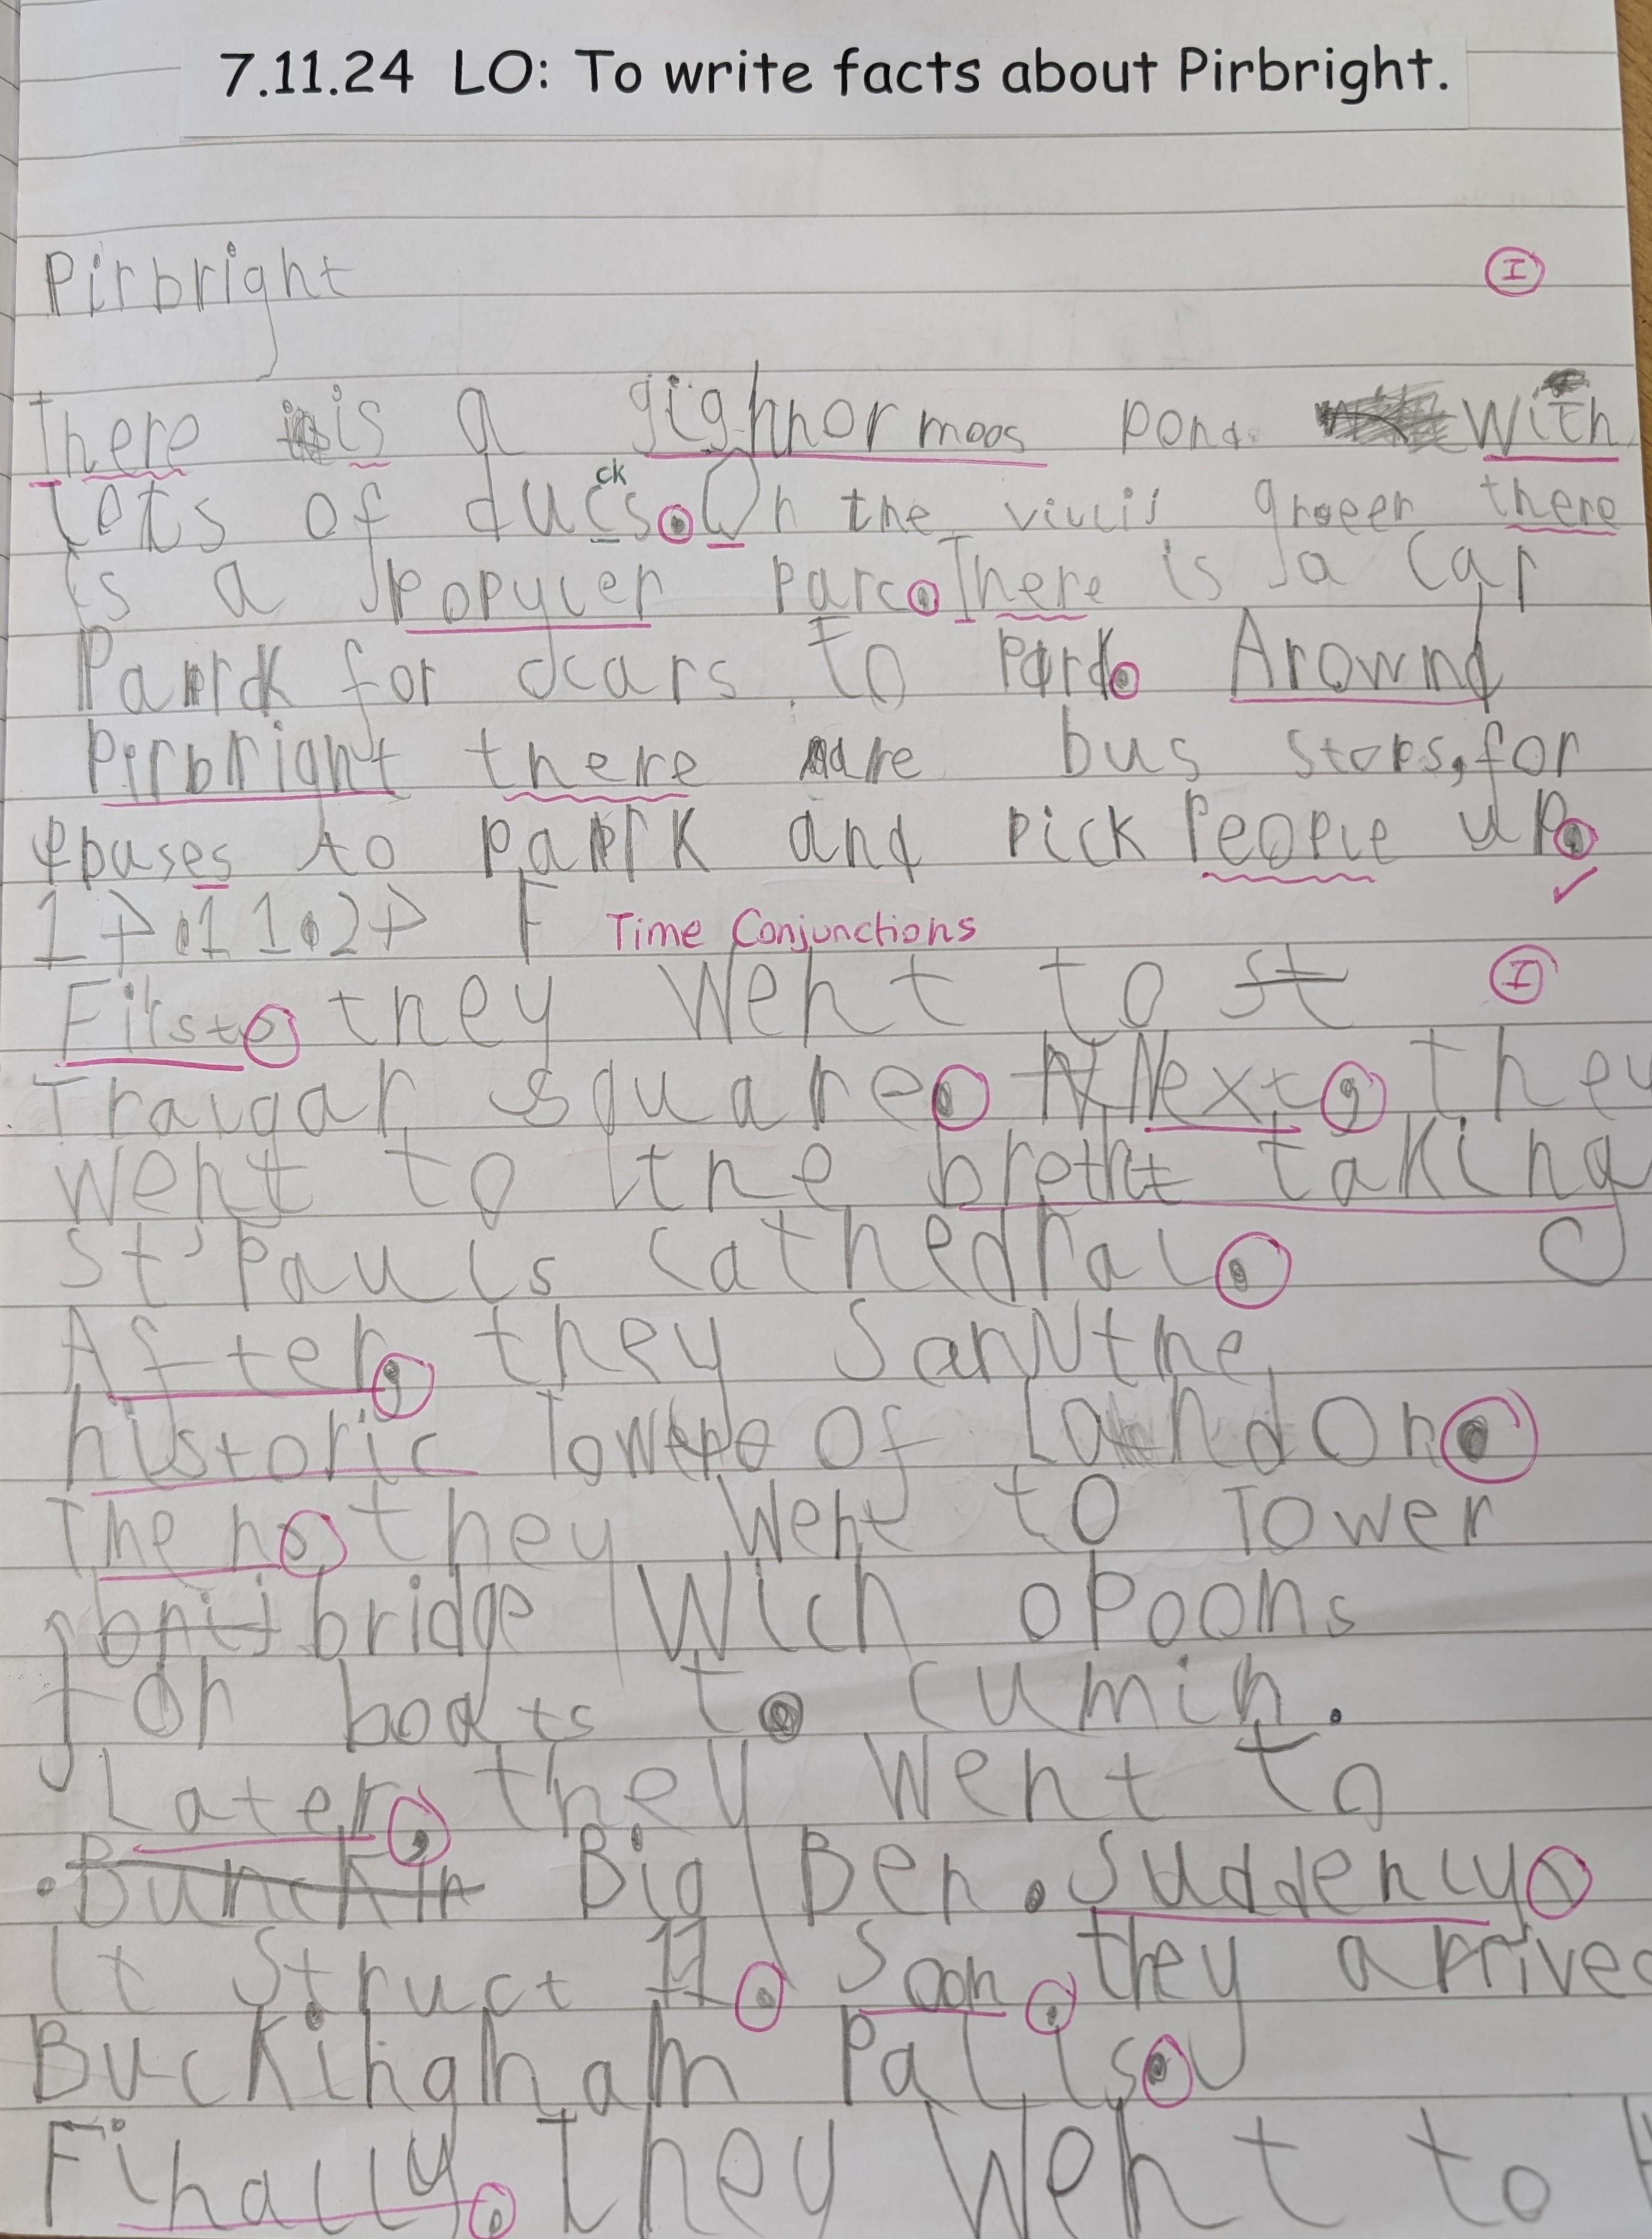 7.11.24 LO: To write facts about Pirbright.
Pirbright
I
There is a gighnormoos pond with
ck
lots of ducs. On the green there
is a popyler parc. There is a car
Parrk for cars to park. Arownd
Pirbright there are bus stops, for
buses to park and pick people up.
Time Conjunctions
First, they went to st
I
Tralgar square. Next, they
went to the breth taking
st'Pauls cathedral.
After, they saw the
historic Tower of London.
Then, they went to Tower
bridge Wich opoons
for boats to cumin.
Later, they went to
Big Ben. Suddenly,
it struct 11. Soon, they arrived
Buckingham Pallis.
Finally, they went to